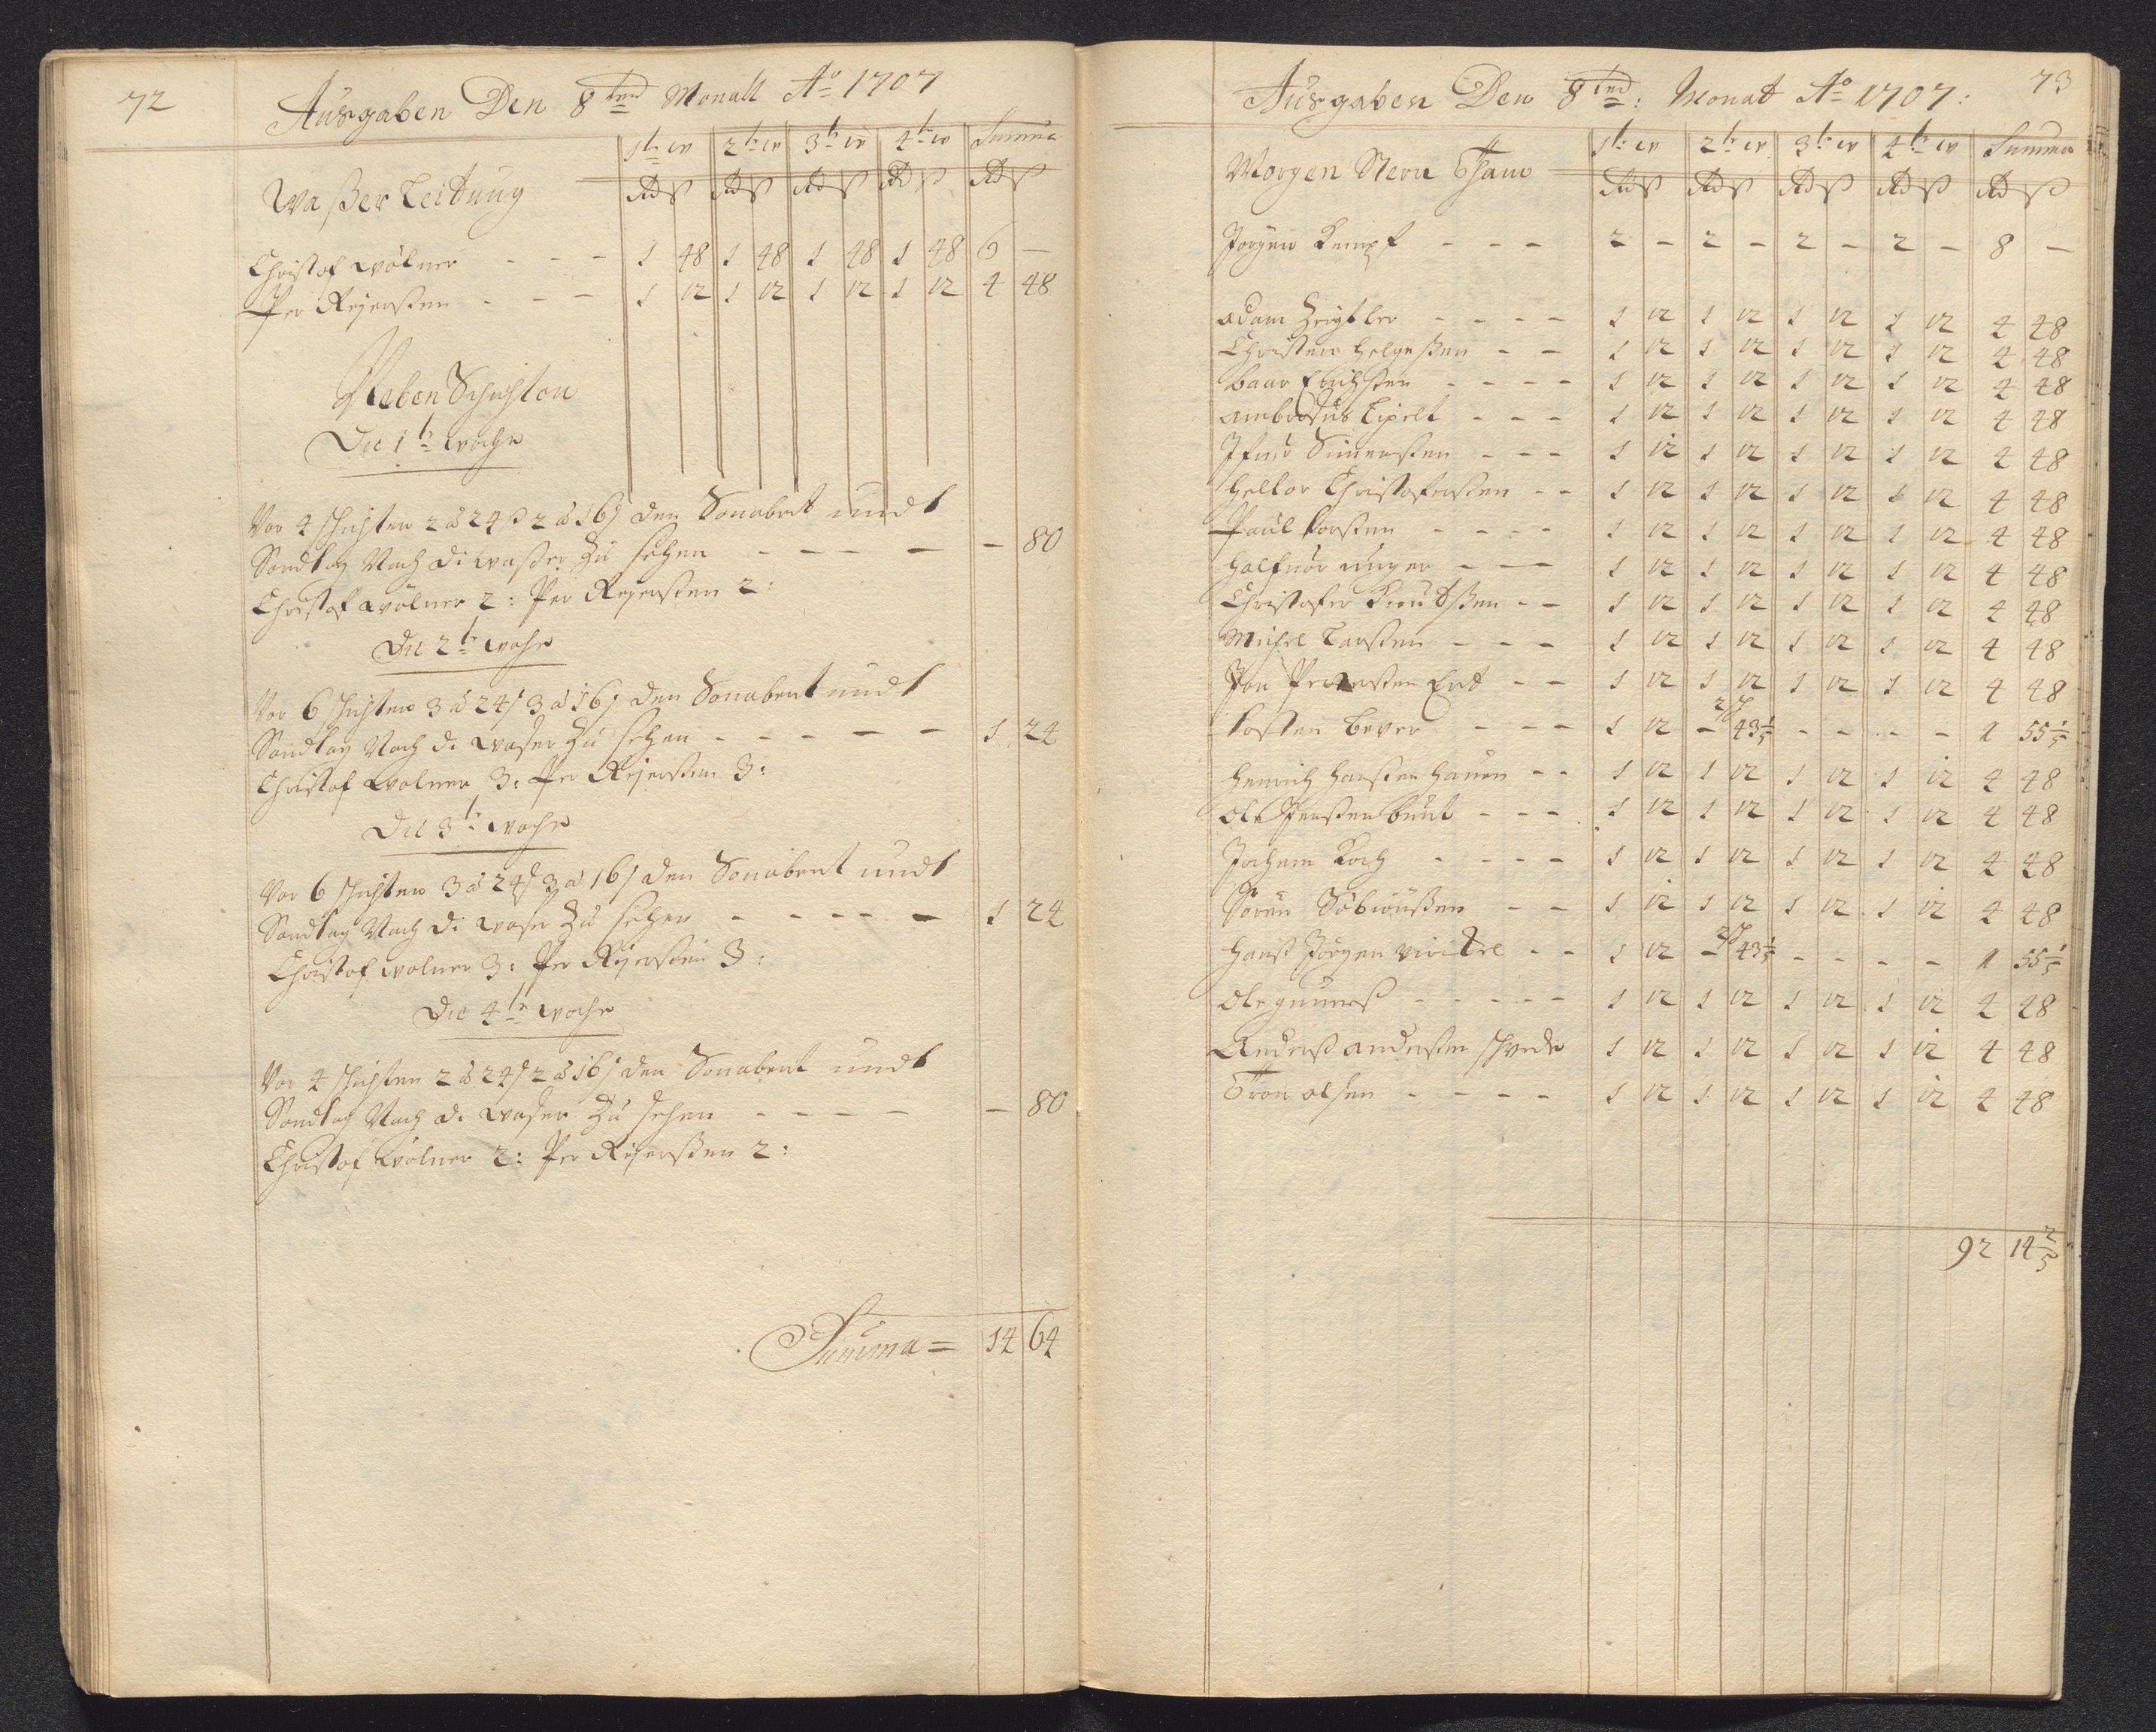 72
Ausgaben Den 8ten Monatt Ao 1707
1te w 2te w 3te w 4te w Summa
Waßer Leitung Rd ß Rd ß Rd ß Rd ß Rd ß
Christof Wölner - - - 1 48 1 48 1 48 1 48 6 —
Per Rejerßen - - - 1 12 1 12 1 12 1 12 4 48
Neben Schichten
Die 1te woche
Vor 4 schichten 2 à 24 ß 2 à 16 ß den Sonabent undt
Sondtag Nach di waßer Zu sehen - - - - - 80
Christof Wölner 2: Per Rejerßen 2:
Die 2te woche
Vor 6 schichten 3 à 24 ß 3 à 16 ß den Sonabent undt
Sondtag Nach di waßer Zu sehen - - - - - 1 24
Christof Wolner 3: Per Rejerßen 3:
Die 3te woche
Vor 6 schichten 3 à 24 ß 3 à 16 ß den Sonabent undt
Sondtag Nach di waßer Zu sehen - - - - - 1 24
Christof Wolner 3: Per Rejerßen 3:
Die 4te woche
Vor 4 schichten 2 à 24 ß 2 à 16 ß den Sonabent undt
Sondtag Nach di waßer Zu sehen - - - - - 80
Christof Wölner 2: Per Rejerßen 2:
Summa = 14 64
73
Ausgaben Den 8ten: Monat Ao 1707:
1te w 2te w 3te w 4te w Summa
Morgen Stern Rd ß Rd ß Rd ß Rd ß Rd ß
Jörgen Kempf - - - 2 - 2 - 2 - 2 - 8 —
Adam - - - - 1 12 1 12 1 12 1 12 4 48
Christen Helgeßen - - 1 12 1 12 1 12 1 12 4 48
Baar - - - - 1 12 1 12 1 12 1 12 4 48
Ambrosius - - - 1 12 1 12 1 12 1 12 4 48
Simenßen - - - 1 12 1 12 1 12 1 12 4 48
Christoferßen - - 1 12 1 12 1 12 1 12 4 48
Paul Larßen - - - - 1 12 1 12 1 12 1 12 4 48
Halfuor unger - - - 1 12 1 12 1 12 1 12 4 48
Christofer Knudtßen - - 1 12 1 12 1 12 1 12 4 48
Michel Larßen - - - 1 12 1 12 1 12 1 12 4 48
Jon - - 1 12 1 12 1 12 1 12 4 48
- - - 1 12 - 43 1/5 - - - - 1 55 1/5
Henrich Hanßen - - 1 12 1 12 1 12 1 12 4 48
Ole Jenßen - - - 1 12 1 12 1 12 1 12 4 48
Jochem Koch - - - - 1 12 1 12 1 12 1 12 4 48
Sören - - 1 12 1 12 1 12 1 12 4 48
Hanß Jörgen - - 1 12 - 43 1/5 - - - - 1 55 1/5
Ole - - - - - 1 12 1 12 1 12 1 12 4 48
Anderß anderßen schvede 1 12 1 12 1 12 1 12 4 48
Tron olsen - - - - 1 12 1 12 1 12 1 12 4 48
92 14 2/5